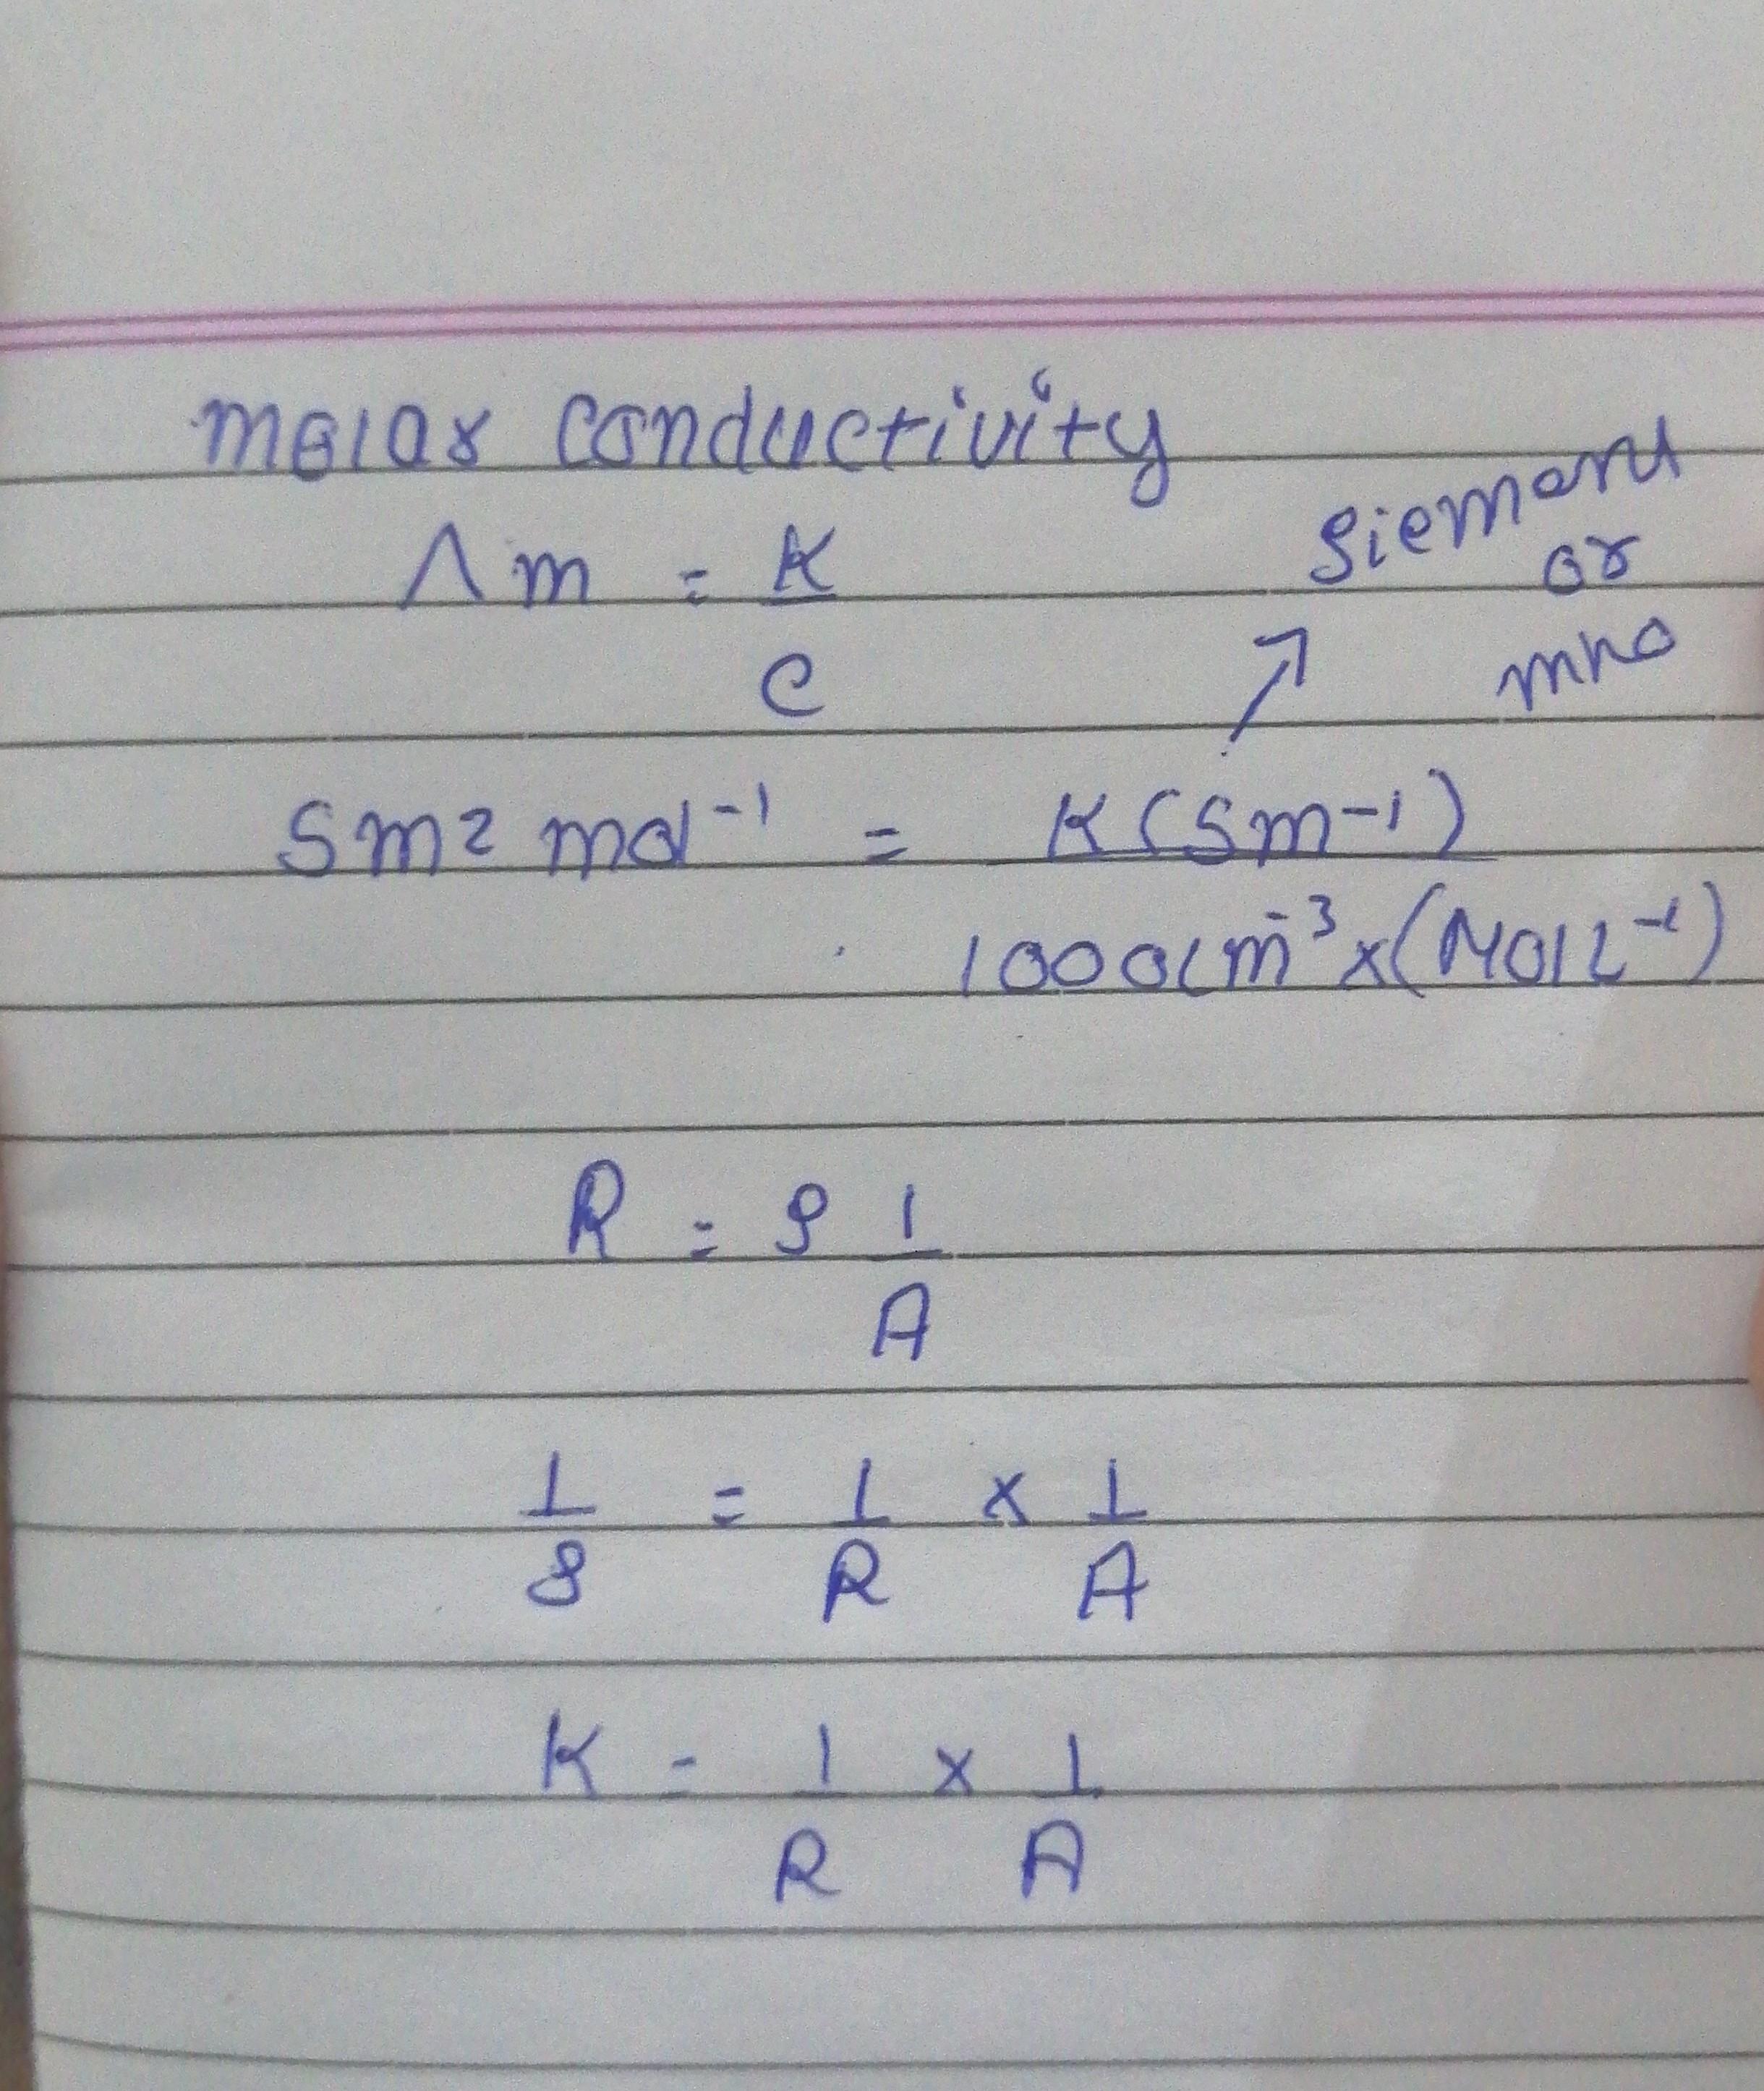 Molar conductivity
Λm = K
Siemens
or
mho
C
Sm2 mol-1 = K (Sm-1)
1000cm-3 x (MolL-1)
R = ρ l
A
1 = 1 x l
ρ R A
K = 1 x l
R A